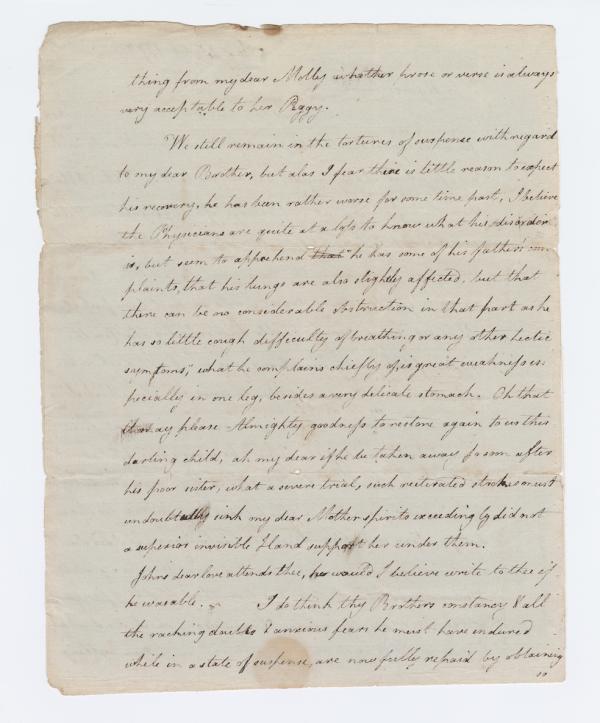 thing from my dear Molly whether prose or verse is always
very acceptable to her Peggy.
We still remain in the tortures of suspense with regard
to my dear Brother, but alas I fear there is little reason to expect
his recovery, he has been rather worse for some time past, I believe
the Physicians are quite at a loss to know what his disorder
is, but seem to apprehend that "he has some of his father's com
plaints, that his lungs are also slightly affected, but that
there can be no considerable obstruction in that part as he
has so little cough difficulty of breathing or any other hectic
symptoms," what he complains chiefly of, is great weakness es:
pecially in one leg, besides a very delicate stomach. Oh that
it may please Almighty goodness to restore again to us this
darling child, ah my dear if he be taken away so soon after
his poor sister, what a severe trial, such reiterated strokes must
undoubtedly sink my dear Mother spirits exceedingly did not
a superior invisible Hand support her under them.
Johns dear love attends thee, he would I believe write to thee if
he was able. I do think thy Brothers constancy & all
the racking doubts & anxious fears he must have endured
while in a state of suspense, are now fully repaid by obtaining
so